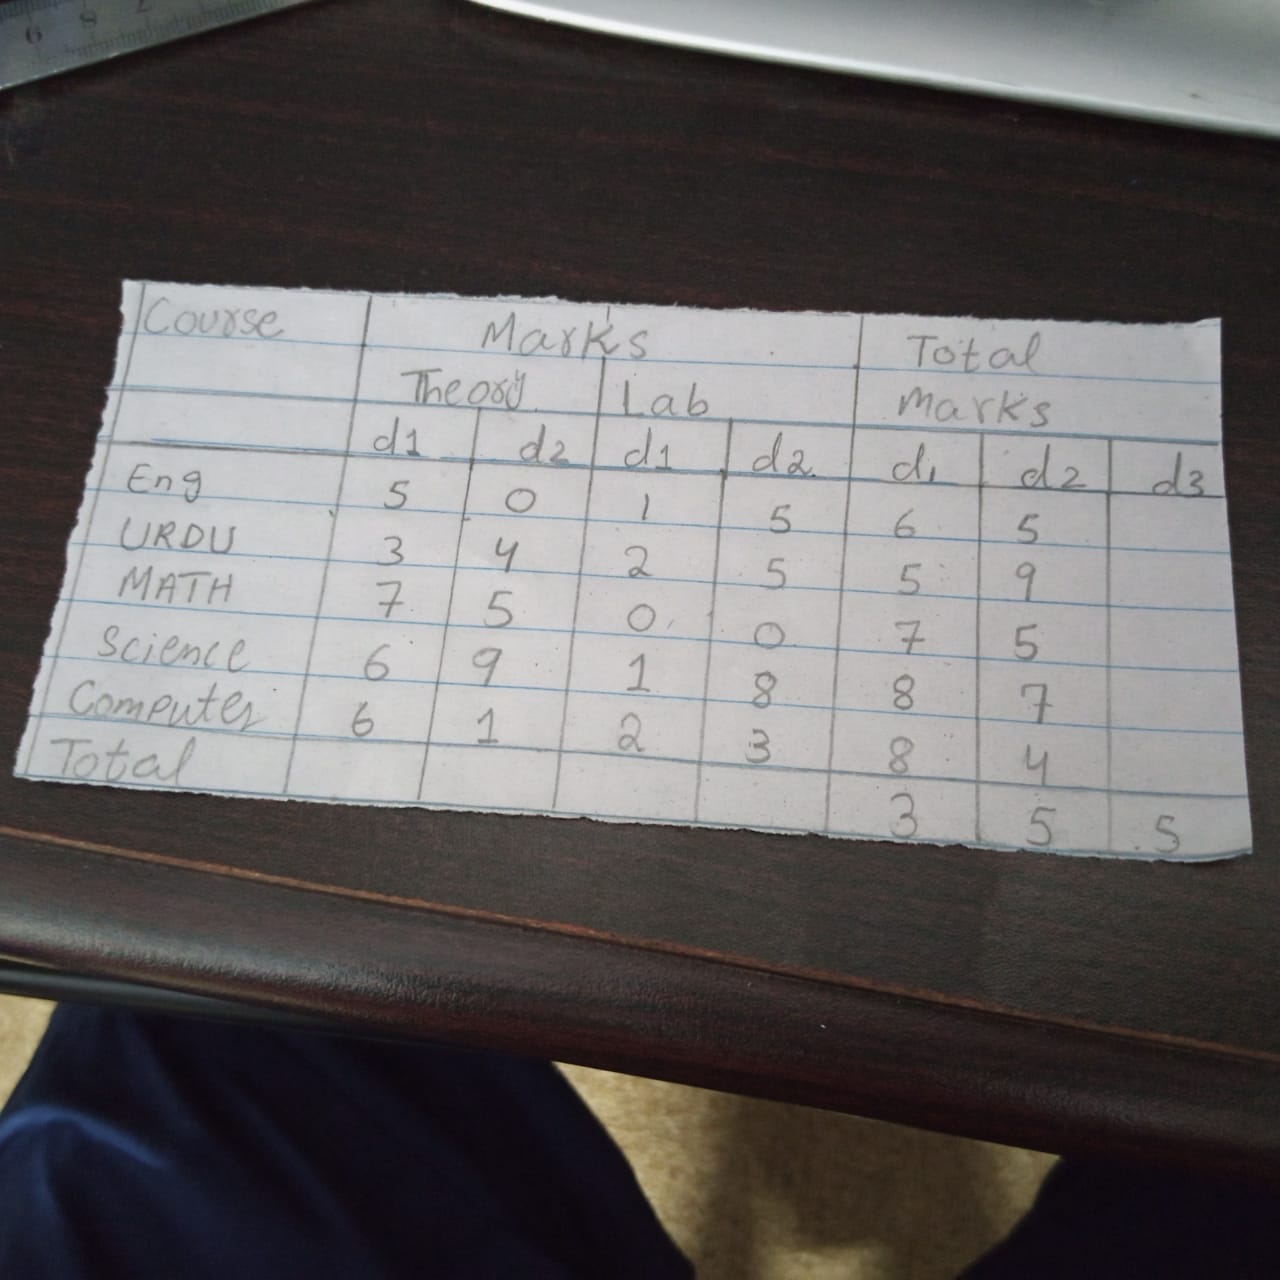 6 8 7
Course Marks Total
Theory Lab Marks
d1 d2 d1 d2 d1 d2 d3
Eng 5 0 1 5 6 5
URDU 3 4 2 5 5 9
MATH 7 5 0 0 7 5
Science 6 9 1 8 8 7
Computer 6 1 2 3 8 4
Total 3 5 5